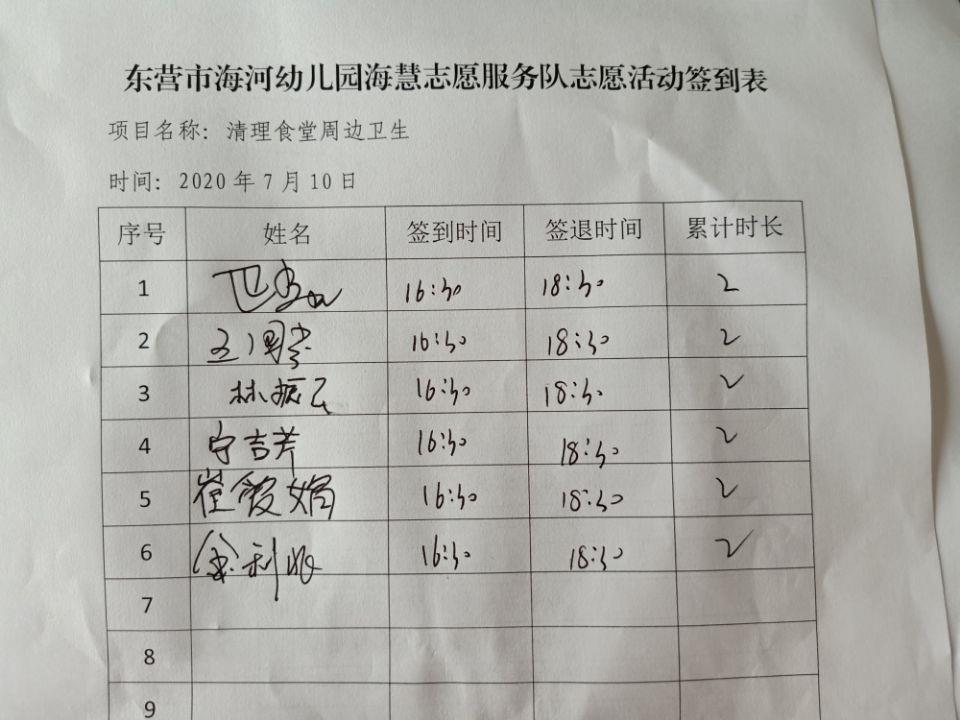 东营市海河幼儿园海慧志愿服务队志愿活动签到表
项目名称：清理食堂周边卫生
时间：2020年7月10日
序号 姓名 签到时间 签退时间 累计时长
1 16:30 18:30 2
2 16:30 18:30 2
3 林振云 16:30 18:30 2
4 宁吉芳 16:30 18:30 2
5 崔霞娟 16:30 18:30 2
6 金利 16:30 18:30 2
7
8
9